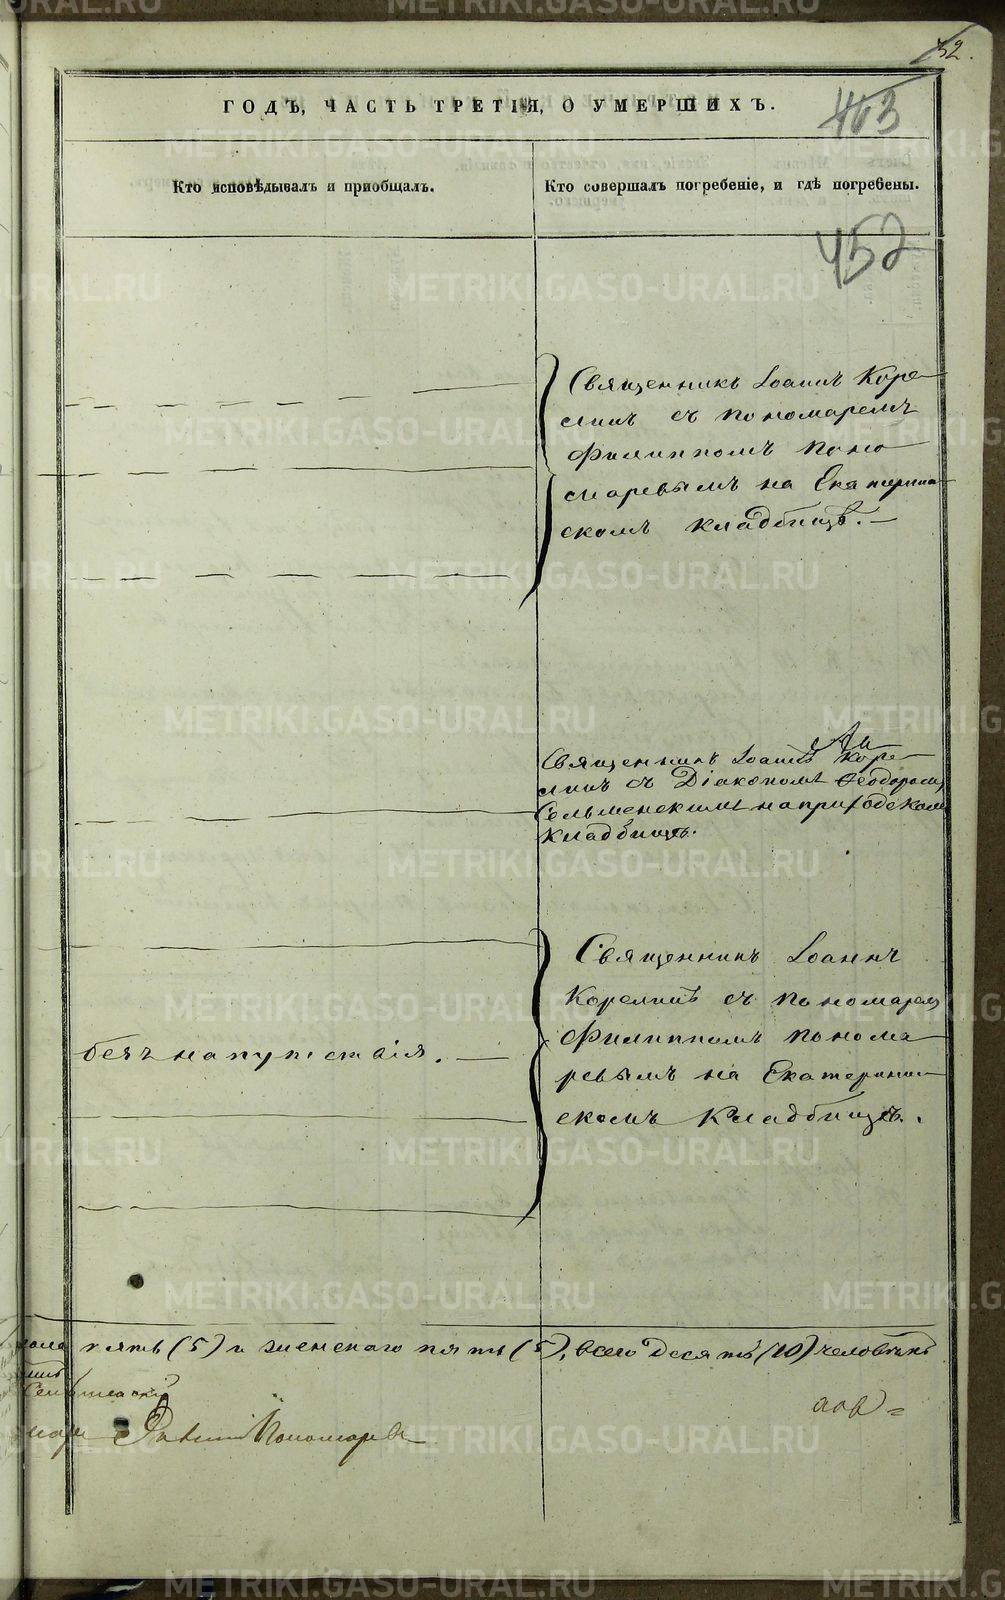 32.
ГОДЪ, ЧАСТЬ ТРЕТІЯ, О УМЕРШИХЪ.
463
Кто исповѣдывалъ и пріобщалъ.
Кто совершалъ погребеніе, и гдѣ погребены.
452
Священникъ Іоаннъ Коре-
линъ съ пономаремъ
Филиппомъ Поно
маревымъ на Екатерин-
скомъ кладбищѣ. —
Священникъ Іоаннъ Коре-
линъ съ Діакономъ Ѳеодоромъ
Сельменскимъ на приходскомъ
кладбищѣ.
Священникъ Іоаннъ
Корелинъ съ пономаремъ
Филиппомъ Понома-
ревымъ на Екатерин-
скомъ Кладбищѣ.
безъ напутствія. —
пола пять (5) и женскаго пять (5), всего десять (10) человѣкъ
Сельменскій
Пономаревъ
METRIKI.GASO-URAL.RU